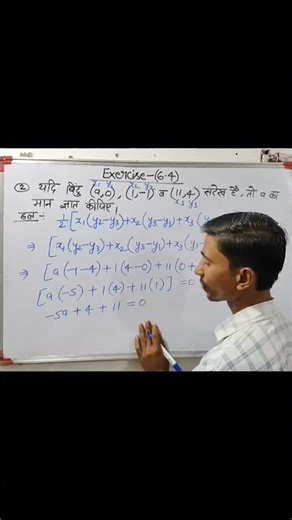 Exercise-(6.4)
x₁ y₁ x₂ y₂
② यदि बिंदु (a,0), (1,-1) व (11,4) सरेख है, तो a का
x₃ y₃
मान ज्ञात कीजिए।
हल:- 1/2[x₁(y₂-y₃)+x₂(y₃-y₁)+x₃(y₁
⇒ [x₁(y₂-y₃)+x₂(y₃-y₁)+x₃(y₁-
⇒ [a(-1-4)+1(4-0)+11(0+
[a(-5)+1(4)+11(1)]=0
-5a+4+11=0